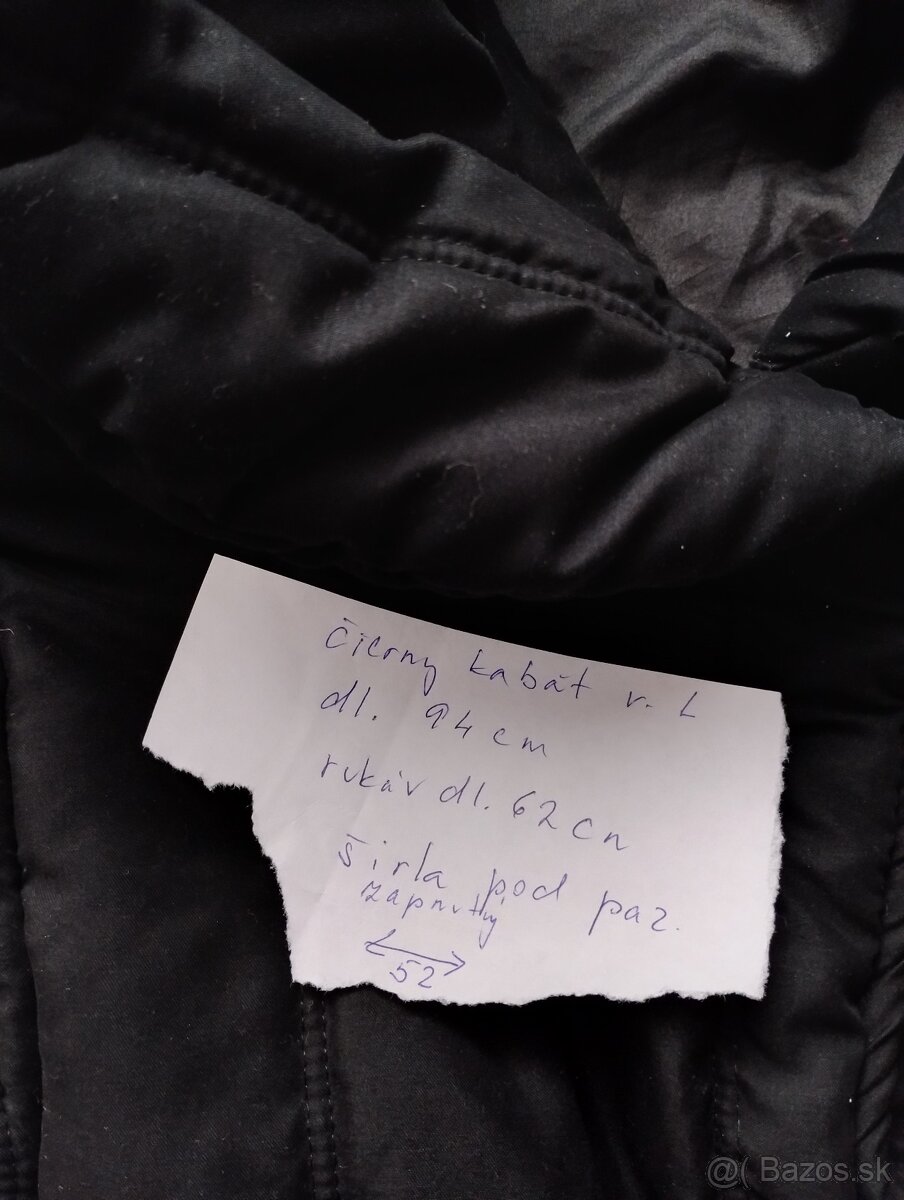 čierny kabát v. L
dl. 94 cm
rukáv dl. 62 cm
šírka pod paz.
zapnutý
52
@( Bazos.sk